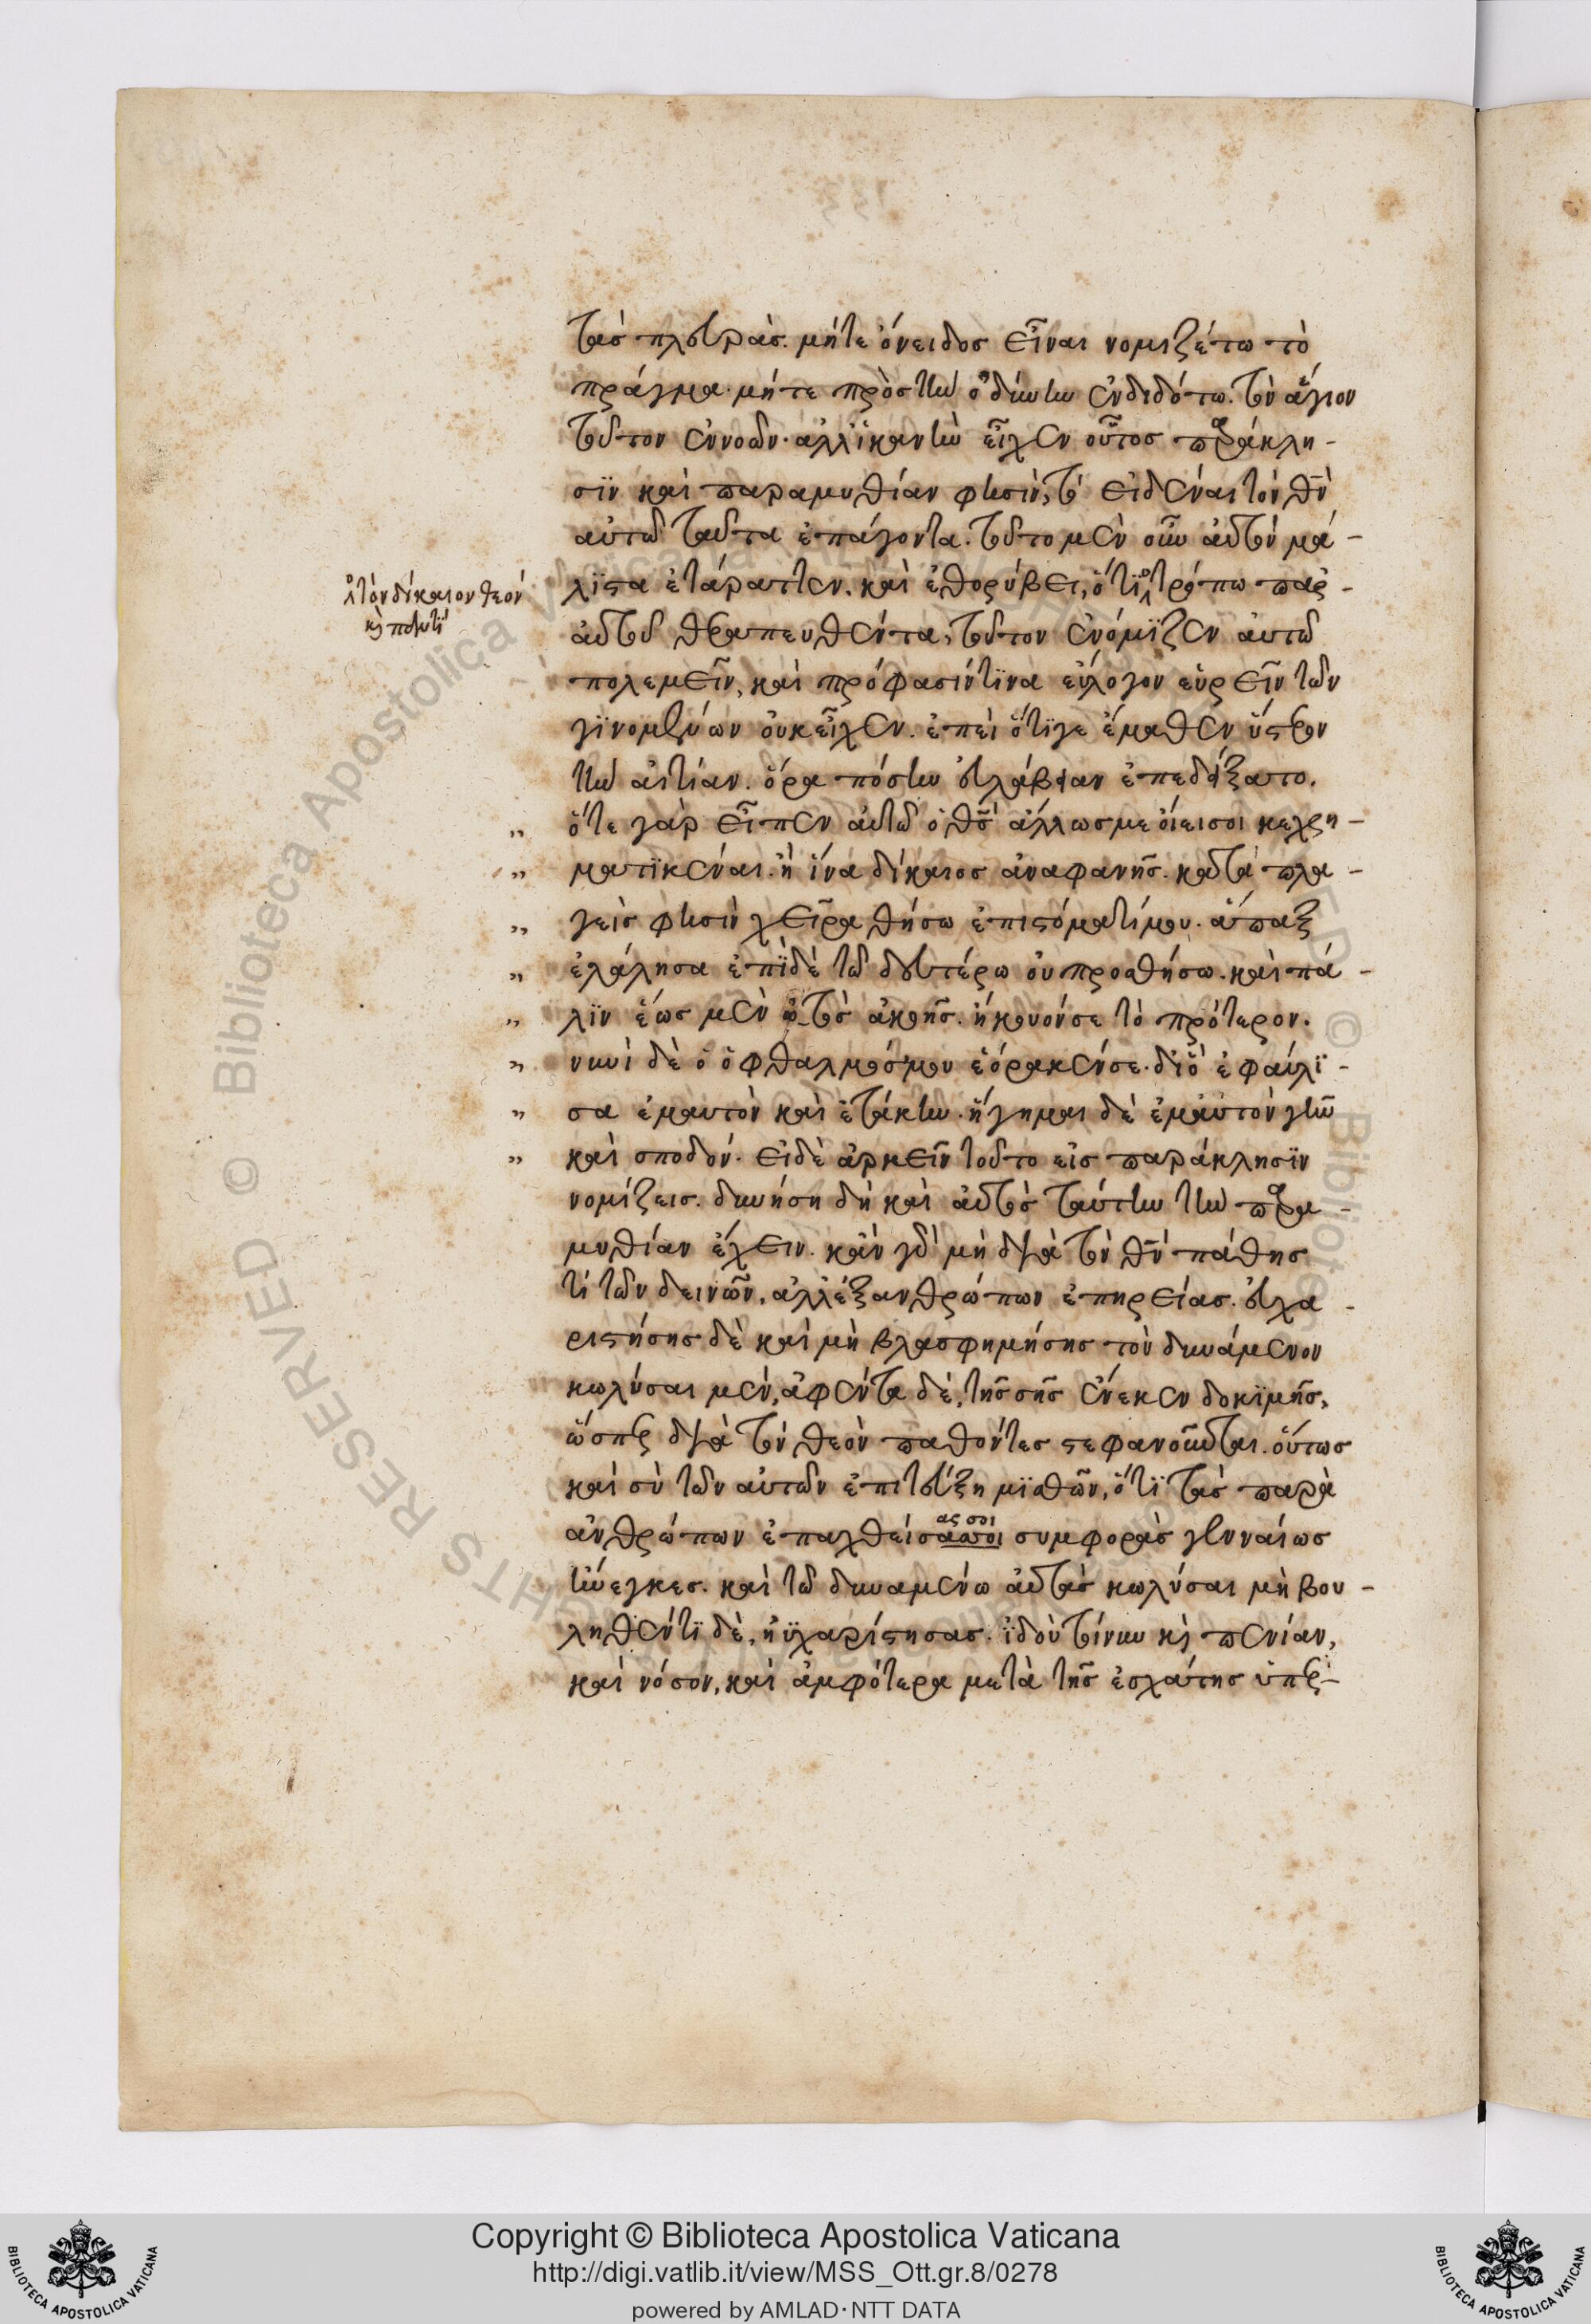 τὰς πλευρὰς. μήτε ὄνειδος εἶναι νομιζέτω τὸ
πράγμα. μήτε πρὸς τὴν ὀδύνην ἐνδιδότω. τὸν ἅγιον
τοῦτον ἐννοῶν. ἀλλ' ἱκανὴν εἶχεν οὗτος παράκλη-
σϊν καὶ παραμυθίαν φησὶν, τὸ εἰδέναι τὸν θν
αὐτῶ ταῦτα ἐπάγοντα. τοῦτο μὲν οὖν αὐτὸν μά-
λϊστα ἐτάραττεν. καὶ ἐθορύβει, ὅτϊ τρόπω παρ-
ὁ τὸν δίκαιον θεόν
καὶ παντί
αὐτοῦ θεραπευθέντα, τοῦτον ἐνόμϊζεν αὐτῶ
πολεμεῖν, καὶ πρόφασίν τϊνα εὔλογον εὑρεῖν τῶν
γϊνομένων οὐκ εἶχεν. ἐπεὶ ὅτϊ γε ἔμαθεν ὕστερον
τὴν αἰτίαν. ὅρα πόσην εὐλάβειαν ἐπεδείξατο.
ὅτε γὰρ εἶπεν αὐτῶ ὁ θς ἄλλως με οἴει σοι κεχρη-
ματϊκέναι. ἢ ἵνα δίκαιος ἀναφανῆς. καταπλα-
γεὶς φησὶν χεῖρα θήσω ἐπὶ στόματί μου. ἅπαξ
ἐλάλησα ἐπϊ δὲ τῶ δευτέρω οὐ προσθήσω. καὶ πά-
λϊν ἕως μὲν ὠτὸς ἀκοῆς. ἤκουόν σε τὸ πρότερον.
νυνὶ δὲ ὁ ὀφθαλμός μου ἑόρακέν σε. διὸ ἐφαύλϊ-
σα ἐμαυτὸν καὶ ἐτάκην. ἥγημαι δὲ ἐμαυτὸν γῆν
καὶ σποδόν. εἰ δὲ ἀρκεῖν τοῦτο εἰς παράκλησϊν
νομίζεις. δυνήση δὴ καὶ αὐτὸς ταύτην τὴν παρα-
μυθίαν ἔχειν. κἂν γὰρ μὴ διὰ τὸν θν πάθης
τί τῶν δεινῶν, ἀλλ' ἐξ ἀνθρώπων ἐπηρείας. εὐχα-
ριστήσης δὲ καὶ μὴ βλασφημήσης τὸν δυνάμενον
κωλύσαι μὲν, ἀφέντα δὲ, τῆς σῆς ἕνεκεν δοκϊμῆς,
ὥσπερ διὰ τὸν θεὸν παθόντες στεφανοῦνται. οὕτως
καὶ σὺ τῶν αὐτῶν ἐπιτεύξη μϊσθῶν, ὅτϊ τὰς παρὰ
ἀνθρώπων ἐπαχθείσας σοι συμφορὰς γενναίως
ἤνεγκες. καὶ τῶ δυναμένω αὐτὰς κωλύσαι μὴ βου-
ληθέντϊ δὲ, ηὐχαρίστησας. ἰδοὺ τοίνυν καὶ πενίαν,
καὶ νόσον, καὶ ἀμφότερα μετὰ τῆς ἐσχάτης ὑπερ-
Copyright © Biblioteca Apostolica Vaticana
http://digi.vatlib.it/view/MSS_Ott.gr.8/0278
powered by AMLAD·NTT DATA